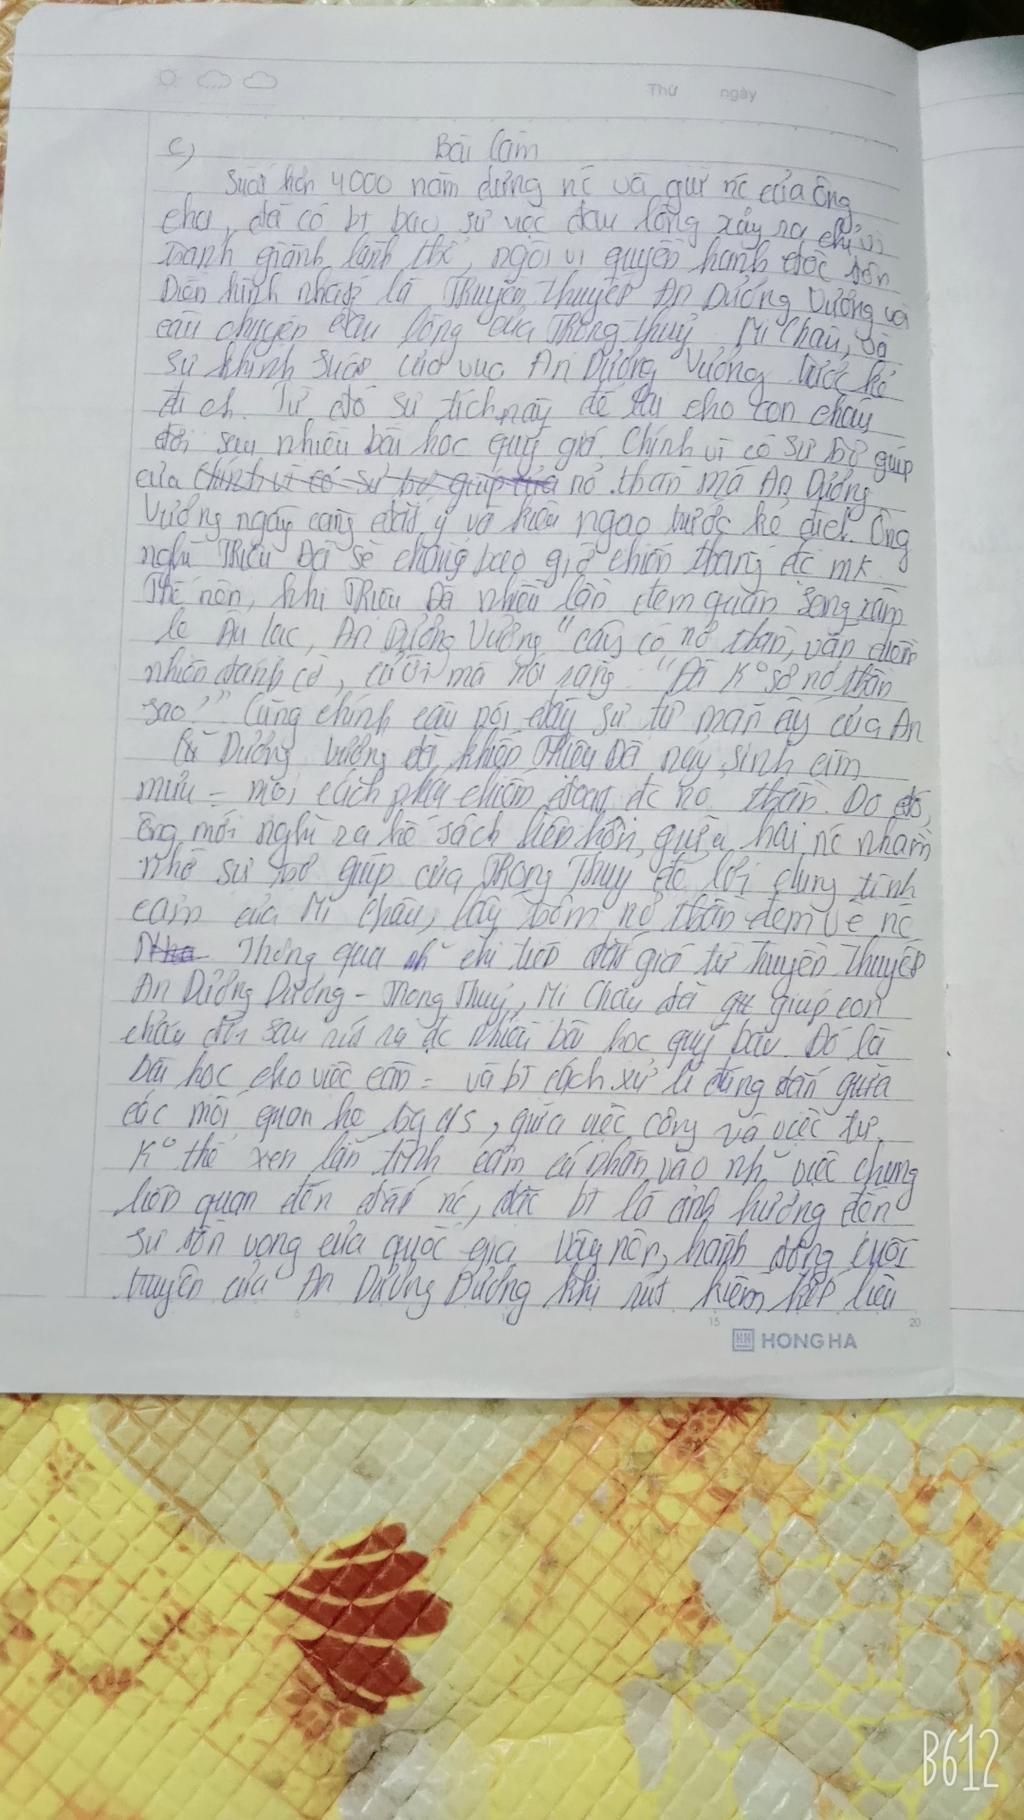 Thứ ngày
c) Bài làm
Suốt lịch 4000 năm dựng nc và giữ nc của Ông
cha, đã có bt bao sự vc đau lòng xảy ra chỉ vì
tranh giành lãnh thổ, ngôi vị quyền hành độc tôn
Điển hình nhất là Truyền Thuyết An Dương Vương và
câu chuyện đau lòng của Trọng Thuỷ Mị Châu, và
sự khinh suất của vua An Dương Vương trước kẻ
địch. Từ đó sự tích này để lại cho con cháu
đời sau nhiều bài học quý giá. Chính vì có sự trợ giúp
của Chính vì có sự trợ giúp của nỏ thần mà An Dương
Vương ngày càng đắc ý và kiêu ngạo trước kẻ địch. Ông
nghĩ Triệu Đà sẽ chẳng bao giờ chiến thắng đc mk
Thế nên, khi Triệu Đà nhiều lần đem quân sang xâm
lc Âu lạc, An Dương Vương "cậy có nỏ thần, vẫn điềm
nhiên đánh cờ, cười mà nói rằng: "Đà K° sợ nỏ thần
sao?" Cũng chính câu nói đầy sự tự mãn ấy của An
Dương Vương đã khiến Triệu Đà nảy sinh âm
mưu = mọi cách phải chiếm đoạt đc nỏ thần. Do đó,
ông mới nghĩ ra kế sách liên hôn giữa hai nc nhằm
nhờ sự trợ giúp của Trọng Thuỷ để lợi dụng tình
cảm của Mị Châu, lấy trộm nỏ thần đem về nc
Thông qua nh~ chi tiết đắt giá từ Truyền Thuyết
An Dương Dương - Trọng Thuỷ, Mị Châu đã giúp con
cháu đời sau rút ra đc nhiều bài học quý báu. Đó là
bài học cho việc cân = và bt cách xử lí đúng đắn giữa
các mối quan hệ giữa việc công và việc tư.
K° thể xen lẫn tình cảm cá nhân vào nh~ việc chung
liên quan đến đất nc, đặc bt là ảnh hưởng đến
sự tồn vong của quốc gia. Vậy nên, hành động cuối
truyện của An Dương Dương khi rút kiếm kết liễu
5 15 20
HONG HA
B612